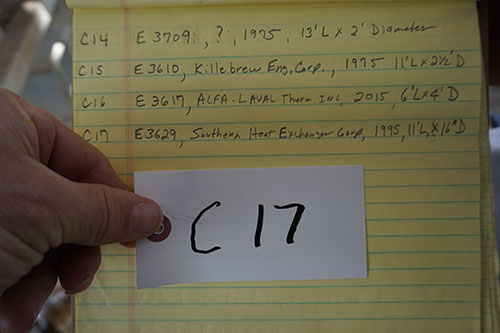 C14 E 3709, ?, 1975, 13' L X 2' Diameter
C15 E 3610, Killebrew Eng. Corp., 1975 11'L x 2½' D
C16 E 3617, ALFA-LAVAL Therm INC, 2015, 6'L x 4' D
C17 E 3629, Southern Heat Exchanger Corp, 1995, 11'L, X 16" D
C 17